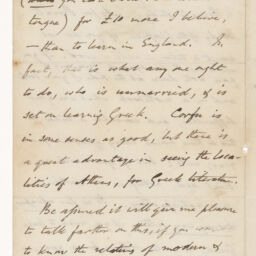 tongue) for £10 more I believe,
—than to learn in England. In
fact, that is what any one ought
to do, who is unmarried, & is
set on learning Greek. Corfu is
in some senses as good, but there is
a great advantage in seeing the loca-
lities of Athens, for Greek literature.
Be assured it will give me pleasure
to talk farther on this, if you
to know the relations of modern &